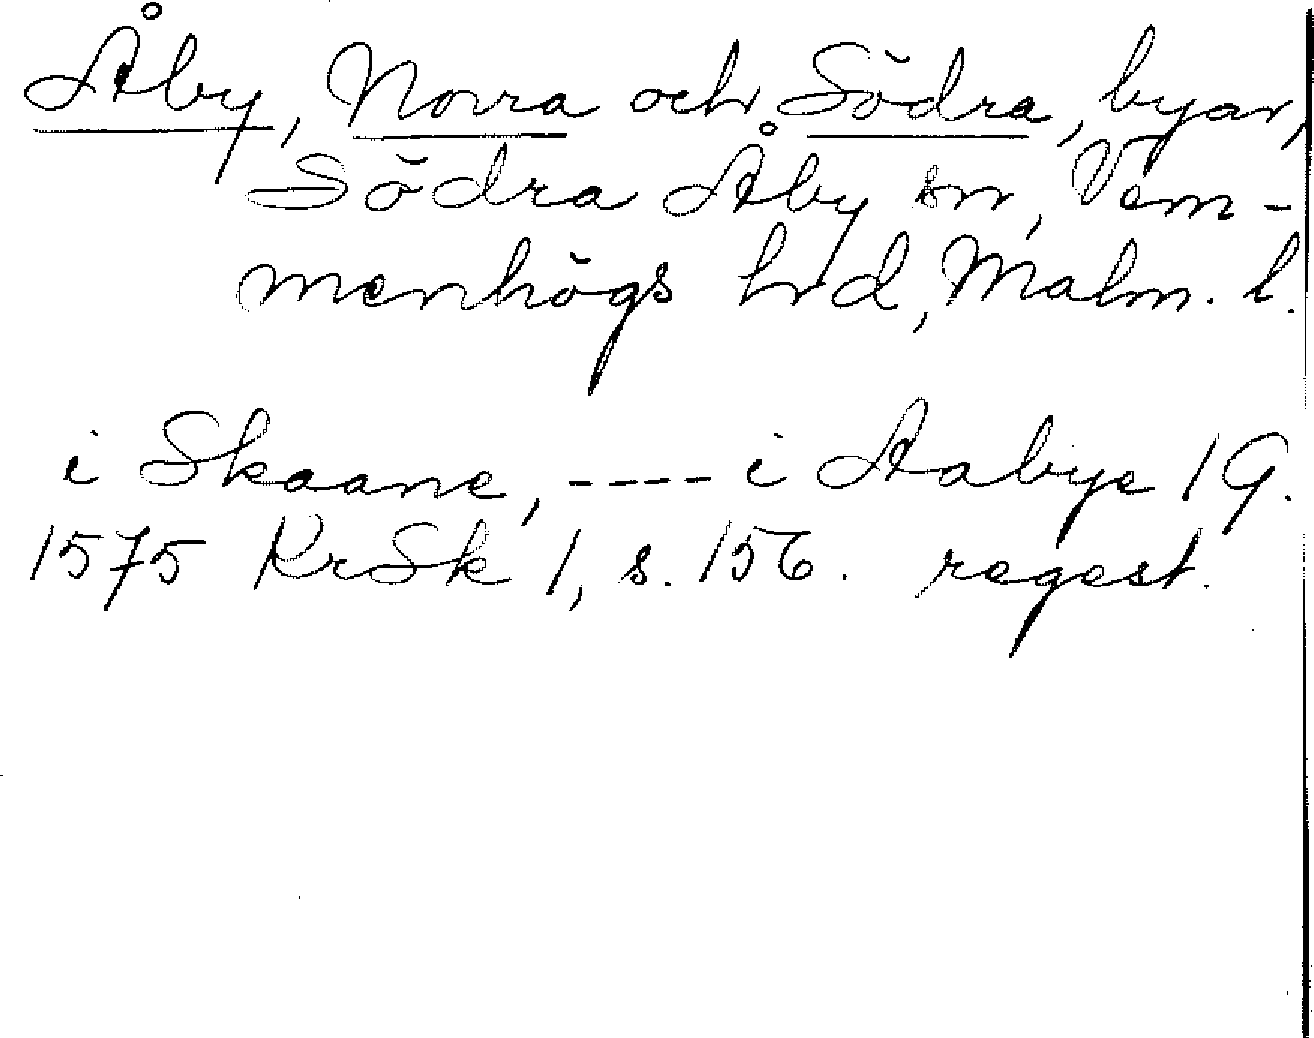 Åby, Norra och Södra, byar,
Södra Åby sn, Vem-
menhögs hd, Malm. l.
i Skaane, ---- i Aabye 1 G.
1575 KrSk 1, s. 156. regest.